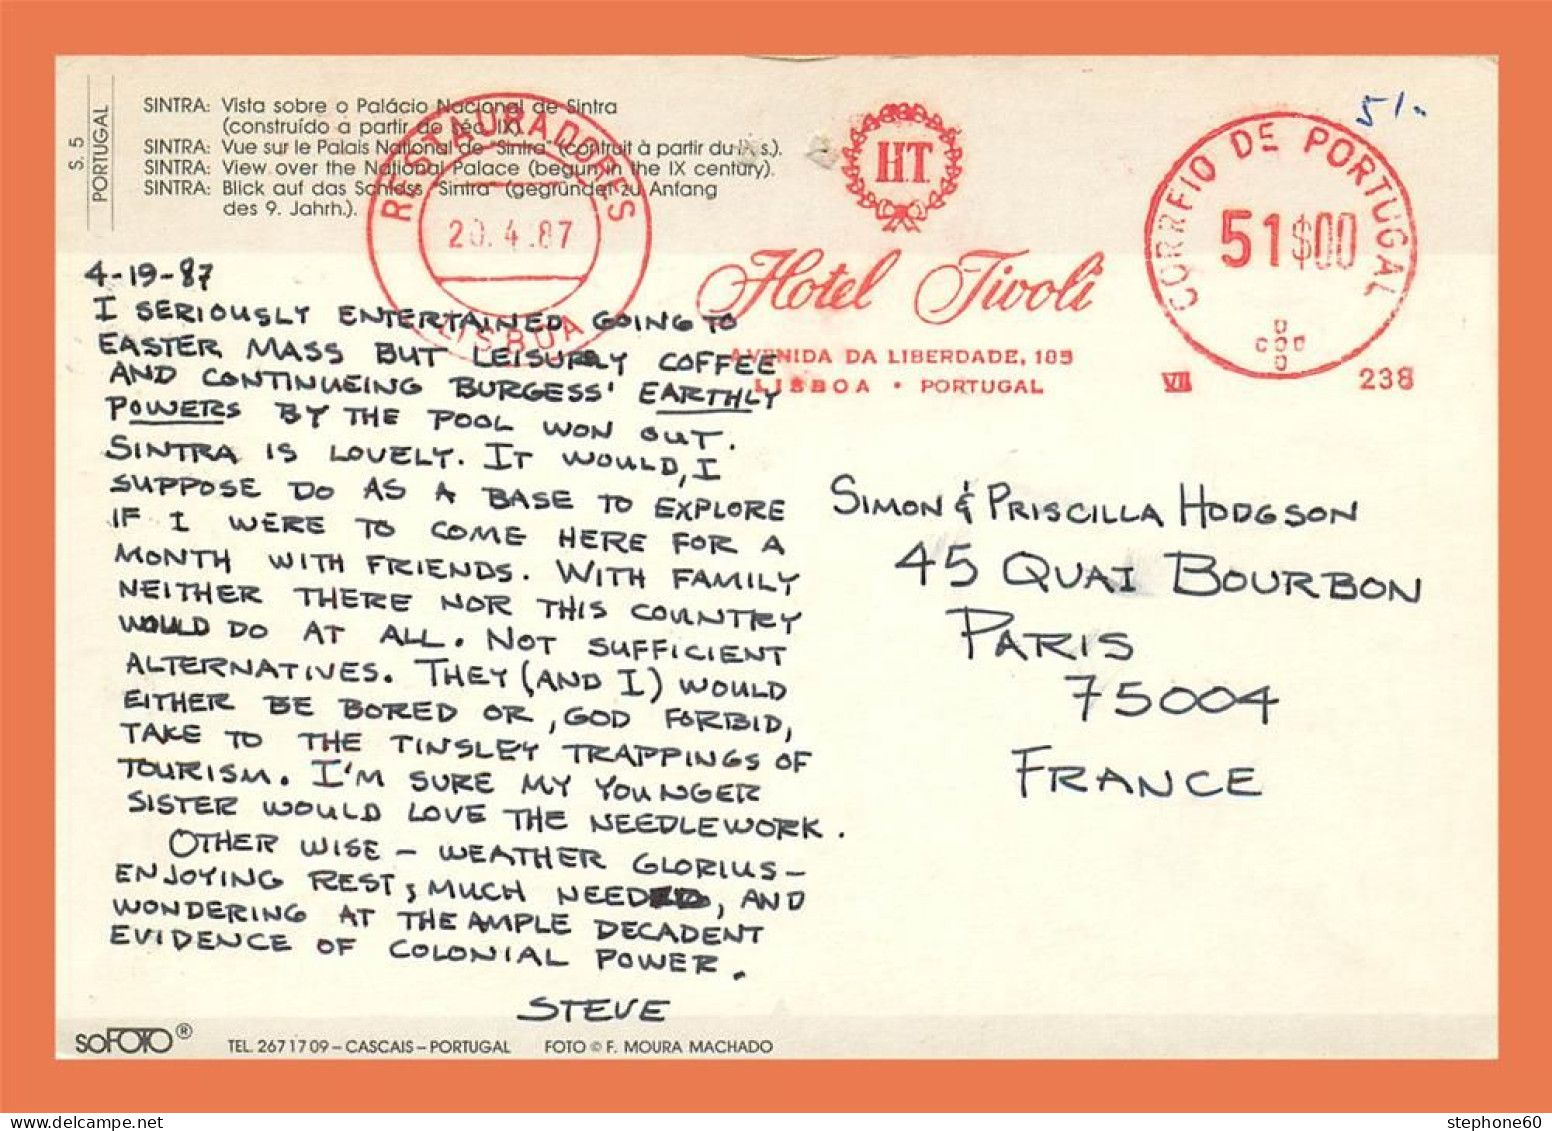 S. 5
PORTUGAL
SINTRA: Vista sobre o Palácio Nacional de Sintra
(construído a partir do séc. IX).
SINTRA: Vue sur le Palais National de "Sintra" (contruit à partir du IX s.).
SINTRA: View over the National Palace (begun in the IX century).
SINTRA: Blick auf das Schloss "Sintra" (gegründet zu Anfang
des 9. Jahrh.).
RESTAURADORES
20.4.87
LISBOA
H.T.
Hotel Tivoli
AVENIDA DA LIBERDADE, 185
LISBOA • PORTUGAL
51.-
CORREIO DE PORTUGAL
51$00
VII
238
4-19-87
I SERIOUSLY ENTERTAINED GOING TO
EASTER MASS BUT LEISURLY COFFEE
AND CONTINUEING BURGESS' EARTHLY
POWERS BY THE POOL WON OUT.
SINTRA IS LOVELY. IT WOULD, I
SUPPOSE DO AS A BASE TO EXPLORE
IF I WERE TO COME HERE FOR A
MONTH WITH FRIENDS. WITH FAMILY
NEITHER THERE NOR THIS COUNTRY
WOULD DO AT ALL. NOT SUFFICIENT
ALTERNATIVES. THEY (AND I) WOULD
EITHER BE BORED OR, GOD FORBID,
TAKE TO THE TINSLEY TRAPPINGS OF
TOURISM. I'M SURE MY YOUNGER
SISTER WOULD LOVE THE NEEDLEWORK.
OTHER WISE - WEATHER GLORIUS -
ENJOYING REST, MUCH NEEDED, AND
WONDERING AT THE AMPLE DECADENT
EVIDENCE OF COLONIAL POWER.
STEVE
SIMON & PRISCILLA HODGSON
45 QUAI BOURBON
PARIS
75004
FRANCE
SOFOTO®
TEL. 267 17 09 – CASCAIS – PORTUGAL FOTO © F. MOURA MACHADO
stephone60